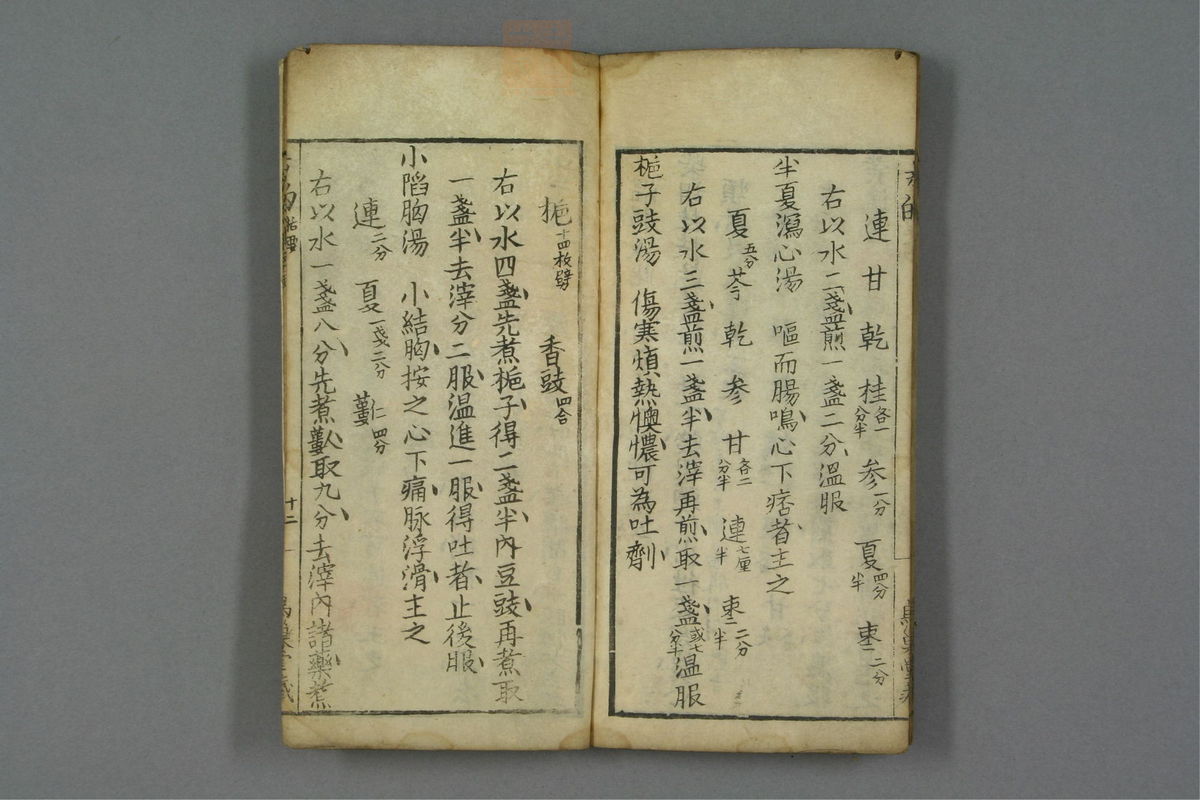 連 甘 乾 桂各一分半 参一分 夏四分半 枣二分
右以水二盞煎一盞二分温服
半夏瀉心湯 嘔而腸鳴心下痞者主之
夏五分 芩 乾 参 甘各二分半 連七厘半 枣二分半
右以水三盞煎一盞半去滓再煎取一盞或七分半温服
梔子豉湯 傷寒煩熱懊憹可為吐劑
梔十四枚擘 香豉四合
右以水四盞先煮梔子得二盞半內豆豉再煮取
一盞半去滓分二服温進一服得吐者止後服
小陷胸湯 小結胸按之心下痛脉浮滑主之
連二分 夏一戔二分 蔞仁四分
右以水一盞八分先煮蔞取九分去滓內諸藥煮
十二